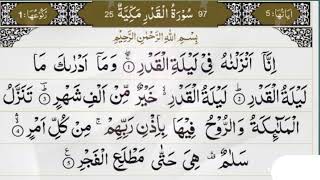 اٰيَاتُهَا:5 97 سُوْرَةُ الْقَدْرِ مَكِّيَّةٌ 25 رُكُوْعُهَا:1
بِسْمِ اللّٰهِ الرَّحْمٰنِ الرَّحِيْمِ
اِنَّاۤ اَنْزَلْنٰهُ فِيْ لَيْلَةِ الْقَدْرِ ۝۱ وَمَاۤ اَدْرٰىكَ مَا
لَيْلَةُ الْقَدْرِ ۝۲ لَيْلَةُ الْقَدْرِ ۙ خَيْرٌ مِّنْ اَلْفِ شَهْرٍ ۝۳ تَنَزَّلُ
الْمَلٰٓئِكَةُ وَالرُّوْحُ فِيْهَا بِاِذْنِ رَبِّهِمْ ۚ مِنْ كُلِّ اَمْرٍ ۝۴
سَلٰمٌ ۛ هِيَ حَتّٰى مَطْلَعِ الْفَجْرِ ۝۵